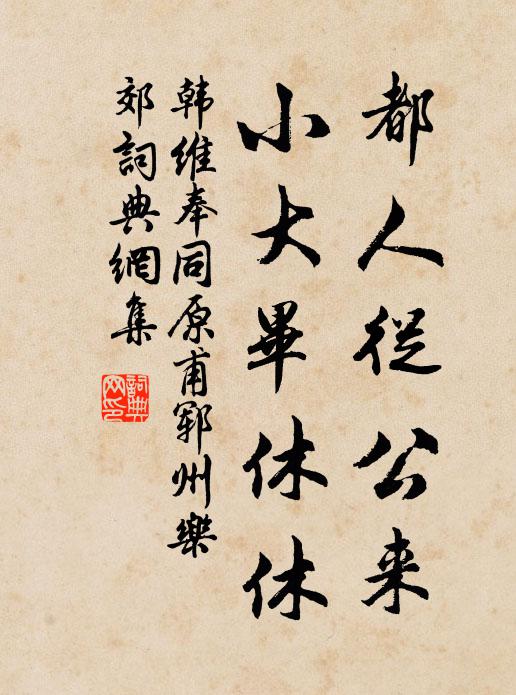 都人從公来
小大畢休休
韩維奉同原甫鄆州樂
郊詞典網集
詞典
网印